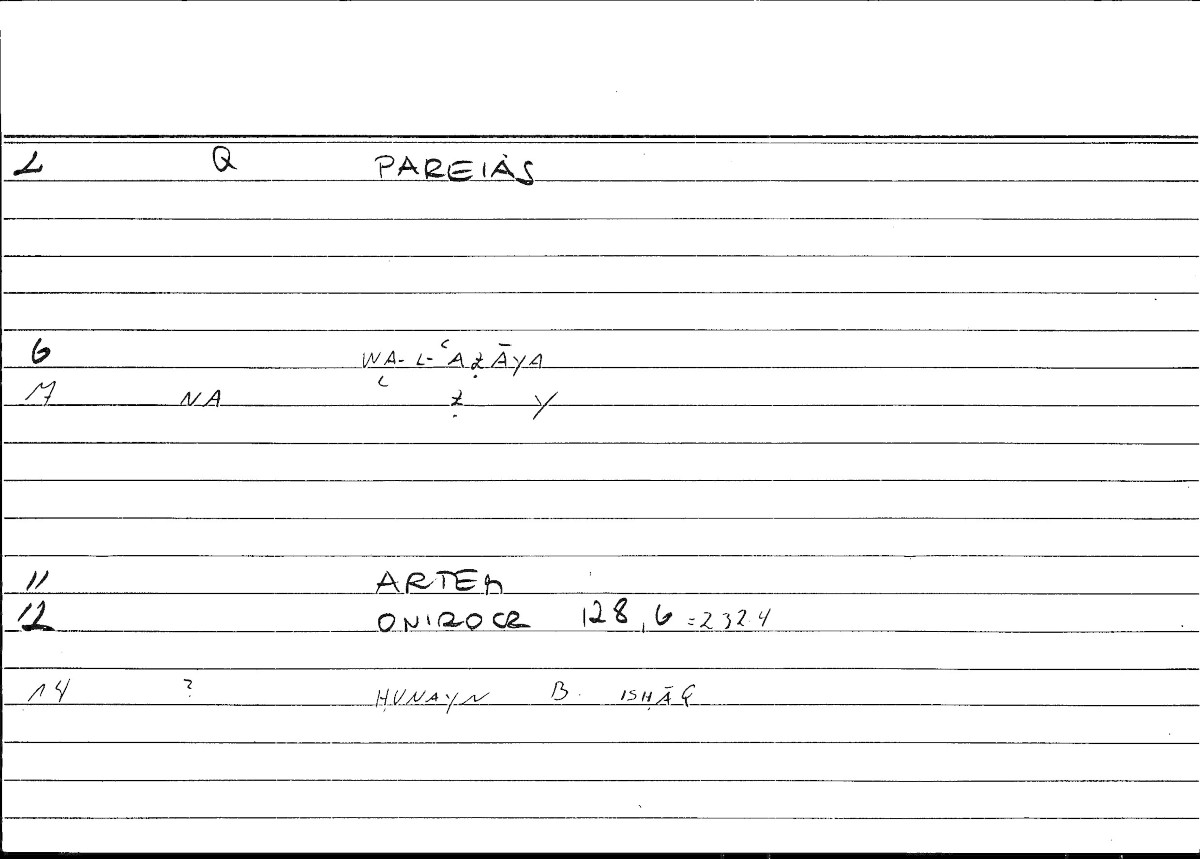 L Q PAREIÀS
6 WA-L-ʿAẒĀYA
7 NA ʿ Ẓ Y
11 ARTEM
12 ONIROCR 128,6 =232.4
14 ? ḤUNAYN B. ISḤĀQ